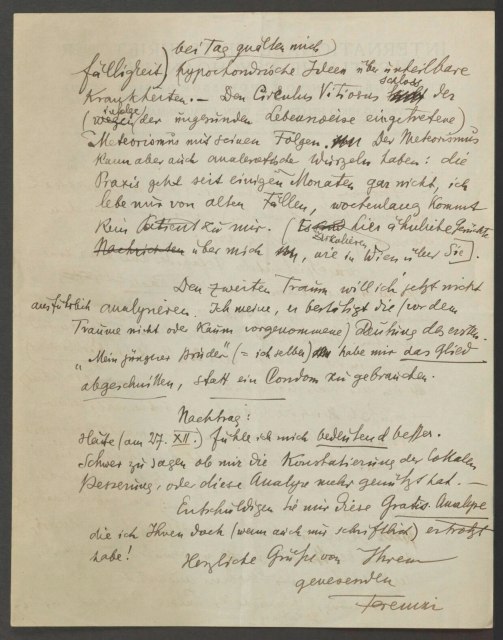 bei Tag quälten mich
fälligkeit) hypochondrische Ideen über unheilbare
Krankheiten. — Den Circulus Vitiosus schloss der
(infolge der ungesunden Lebensweise eingetretene)
Meteorismus mit seinen Folgen. Der Meteorismus
kann aber auch analerotische Wurzeln haben: die
Praxis geht seit einigen Monaten gar nicht, ich
lebe nur von alten Fällen, wochenlang kommt
kein Patient zu mir. (Es sind hier ähnliche Gerüchte
Nachrichten über mich zirkulieren, wie in Wien über Sie).
Den zweiten Traum will ich jetzt nicht
ausführlich analysieren. Ich meine, er bestätigt die (vor dem
Traume nicht oder kaum vorgenommene) Deutung des ersten.
"Mein jüngerer Bruder" (= ich selber) habe mir das Glied
abgeschnitten, statt ein Condom zu gebrauchen.
Nachtrag:
Heute (am 27. XII.) fühle ich mich bedeutend besser.
Schwer zu sagen ob mir die Konstatierung der lokalen
Besserung, oder diese Analyse mehr genützt hat. —
Entschuldigen Sie mir diese Gratis-Analyse
die ich Ihnen doch (wenn auch nur schriftlich) ertrotzt
habe!
Herzliche Grüße von Ihrem
genesenden
Ferenczi